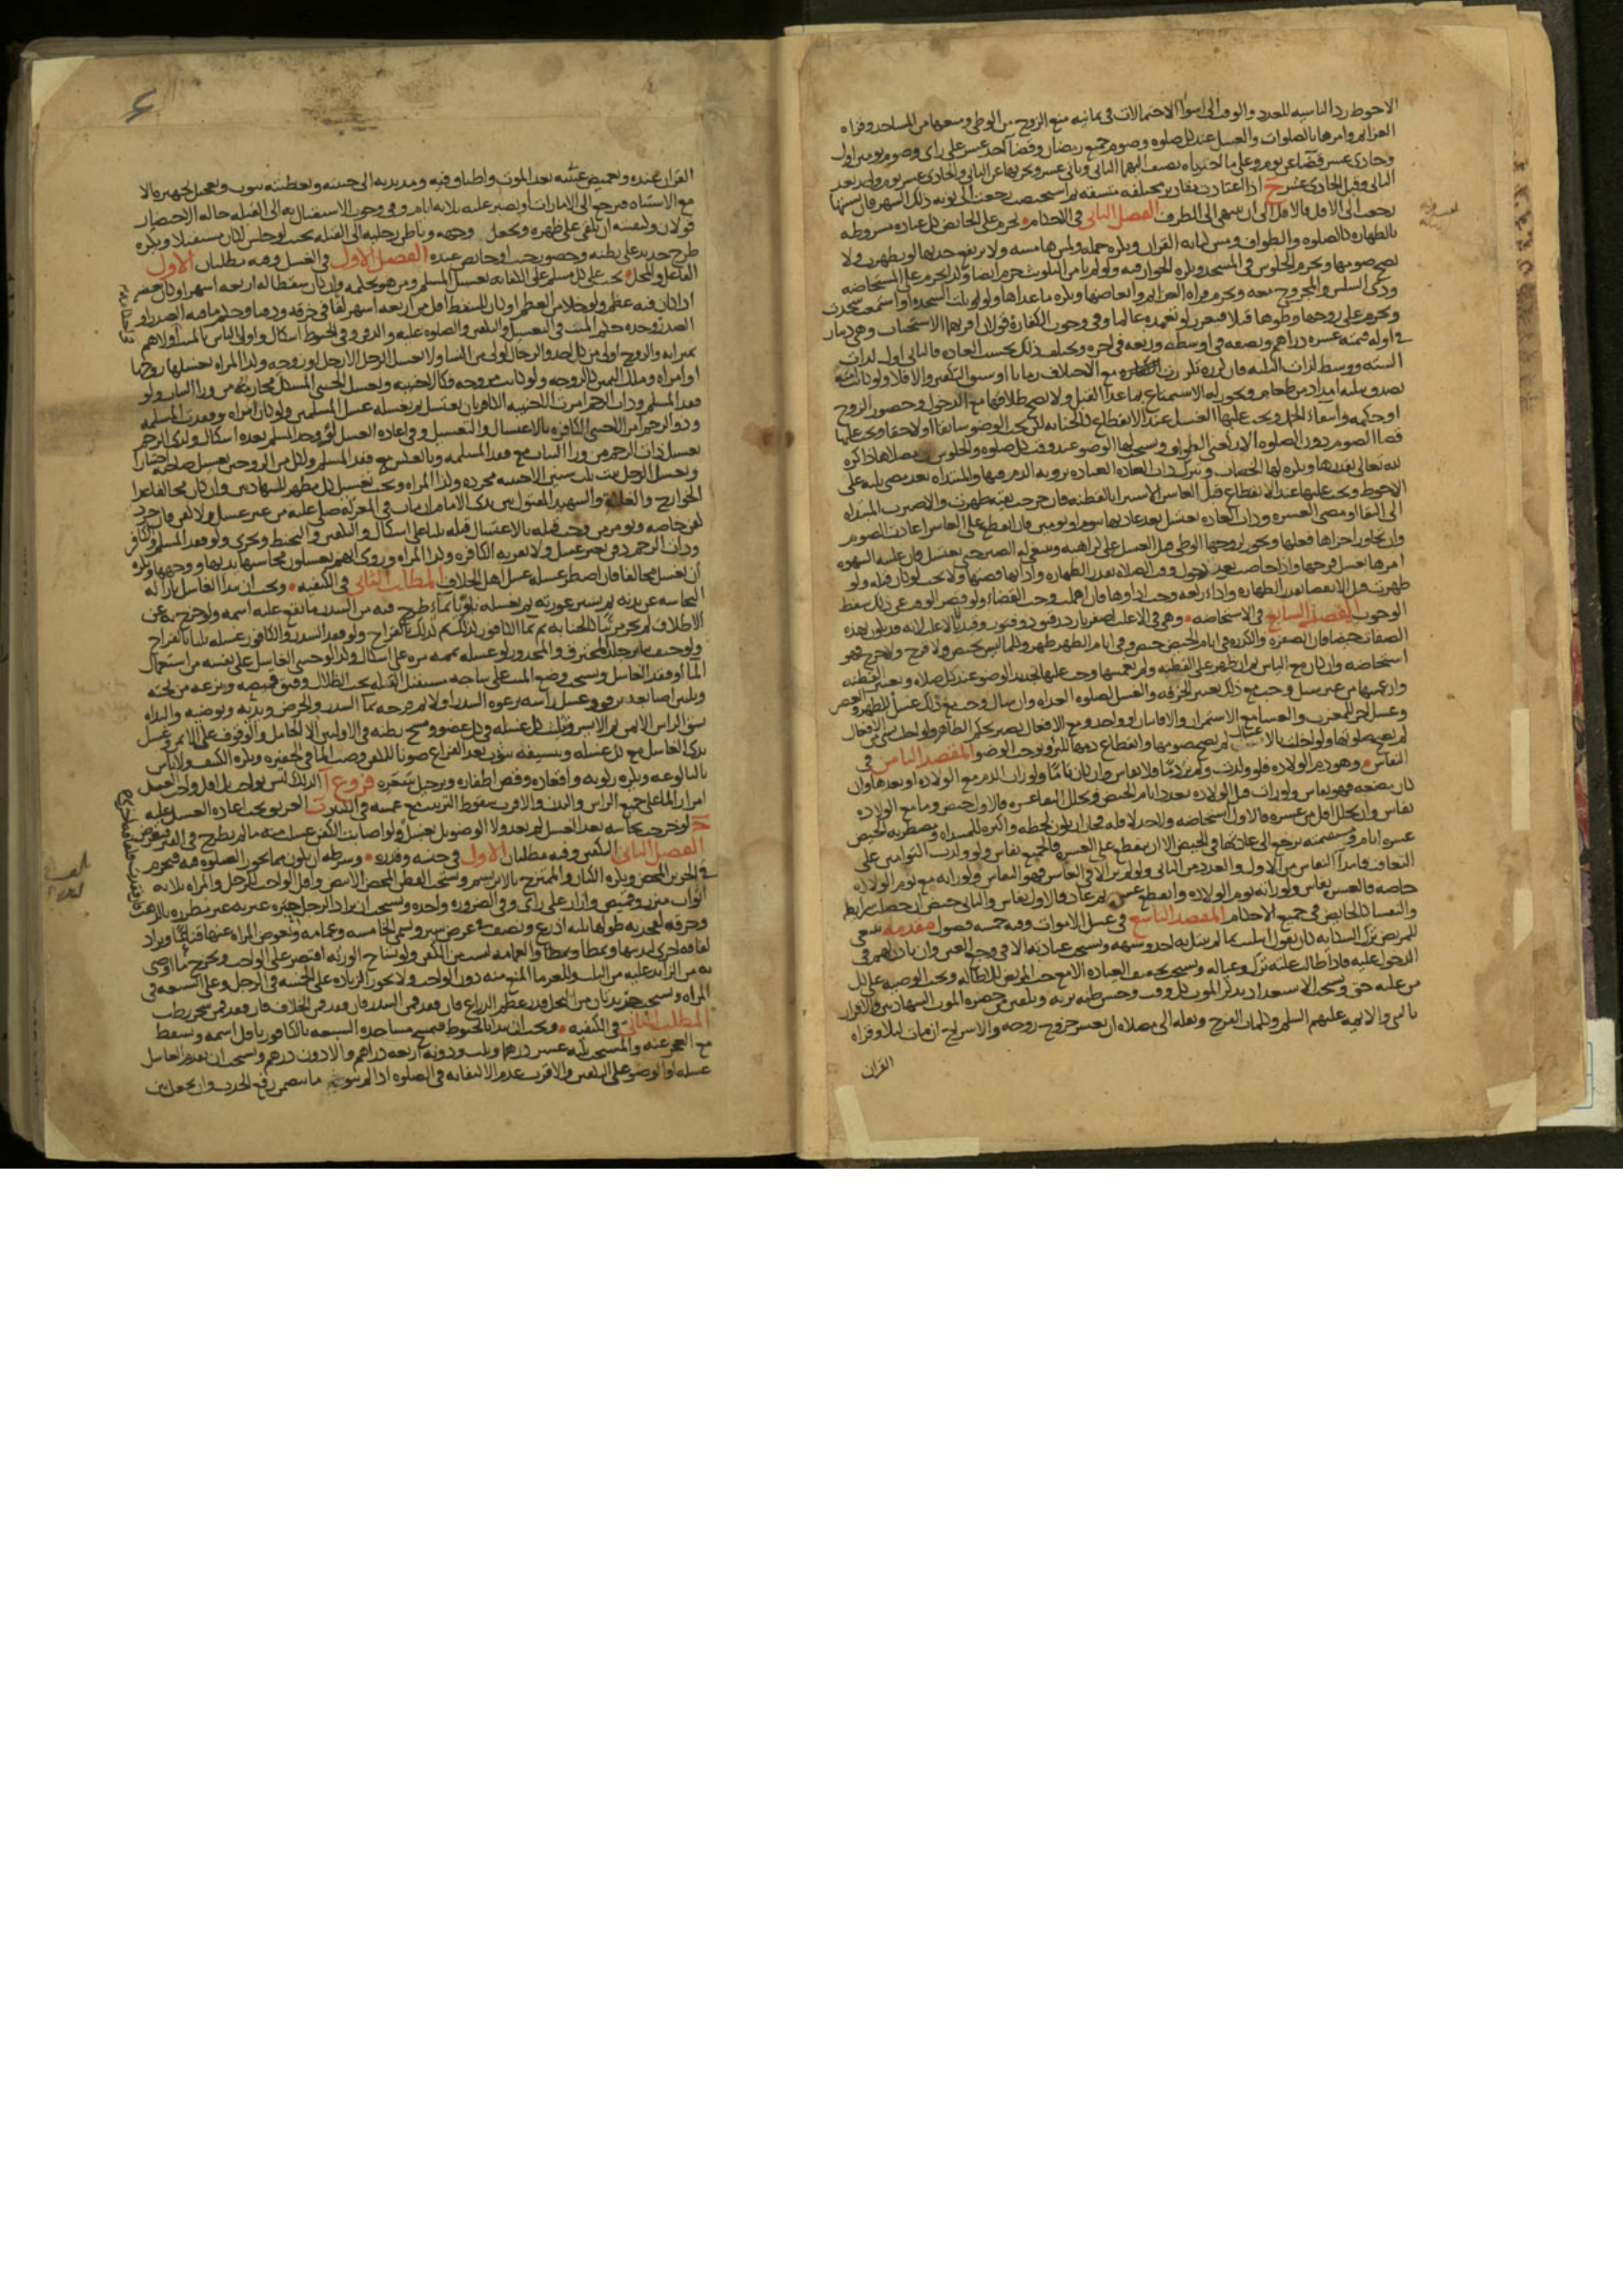 الاحوط رد الناسية للعدد والوقت الى اسوأ الاحتمالات في ثمانية منع الزوج من الوطي ومنعها من المساجد وقراة
العزايم وامرها بالصلوات والغسل عند كل صلوة وصوم جميع رمضان وقضا احد عشر على راى وصوم يومين اول
وحادى عشر قضا عن يوم وعلى ما اخترناه تضيف اليهما الثانى وثانى عشر ويجزيها عن الثانى والحادى عشر يوم واحد بعد
الثانى وقبل الحادى عشر ح اذا اعتادت مقادير مختلفة متسقة ثم استحيضت رجعت الى نوبة ذلك الشهر فان نسيتها
رجعت الى الاقل فالاقل الى ان ينتهى الى الطرف الفصل الثانى في الاحكام يحرم على الحايض كل عبادة مشروطة
بالطهارة كالصلوة والطواف ومس كتابة القران ويكره حمله ولمس هامشه ولا يرتفع حدثها لو تطهرت ولا
يصح صومها ويحرم الجلوس في المسجد ويكره الجواز فيه ولو لم يامن التلويث حرم ايضا وكذا يحرم على المستحاضة
وذى السلس والمجروح معه ويحرم قراة العزايم وابعاضها ويكره ما عداها ولو تلت السجدة او استمعت سجدت
ويحرم على زوجها وطوها قبلا فيعزر لو تعمده عالما وفي وجوب الكفارة قولان اقربهما الاستحباب وهي دينار
في اوله قيمته عشرة دراهم ونصفه في اوسطه وربعه في اخره ويختلف ذلك بحسب العادة فالثانى اول لذات
الستة ووسط لذات الثلثة فان كرره تكررت مع الاختلاف زمانا او سبق التكفير والا فلا ولو كانت امته
تصدق بثلثة امداد من طعام ويجوز له الاستمتاع بما عدا القبل ولا يصح طلاقها مع الدخول وحضور الزوج
او حكمه وانتفاء الحبل ويجب عليها الغسل عند الانقطاع كالجنابة لكن يجب الوضو سابقا او لاحقا ويجب عليها
قضا الصوم دون الصلوة الا ركعتى الطواف ويستحب لها الوضو عند وقت كل صلوة والجلوس في مصلاها ذاكرة
لله تعالى بقدرها ويكره لها الخضاب وتترك ذات العادة العبادة بروية الدم فيها والمبتداة بعد مضى ثلثة على
الاحوط ويجب عليها عند الانقطاع قبل العاشر الاستبرا بالقطنة فان خرجت نقية طهرت والا صبرت المبتداة
الى النقا او مضى العشرة وذات العادة تغتسل بعد عادتها بيوم او يومين فان انقطع على العاشر اعادت الصوم
وان تجاوز اجزاها فعلها ويجوز لزوجها الوطي قبل الغسل على كراهية وينبغى له الصبر حتى تغتسل فان غلبته الشهوة
امرها بغسل فرجها واذا حاضت بعد دخول وقت الصلاة بقدر الطهارة وادائها قضتها ولا يجب لو كان قبله ولو
طهرت قبل الانقضا بقدر الطهارة واداء ركعة وجب اداوها فان اهملت وجب القضاء ولو قصر الوقت عن ذلك سقط
الوجوب المقصد السابع في الاستحاضة وهي في الاغلب اصفر بارد رقيق ذو فتور وقيد بالاغلب لانه قد يكون بهذه
الصفات حيضا فان الصفرة والكدرة في ايام الحيض حيض وفي ايام الطهر طهر وكلما ليس بحيض ولا قرح ولا جرح فهو
استحاضة وان كان مع الياس ثم ان ظهر على القطنة ولم يغمسها وجب عليها تجديد الوضو عند كل صلاة وتغيير القطنة
وان غمسها من غير سيل وجب مع ذلك تغيير الخرقة والغسل لصلوة الغداة وان سال وجب مع ذلك غسل للظهر والعصر
وغسل اخر للمغرب والعشا مع الاستمرار والا فاثنان او واحد ومع الافعال تصير بحكم الطاهر ولو اخلت بشى من الافعال
لم تصح صلوتها ولو اخلت بالاغسال لم يصح صومها وانقطاع دمها للبرو يوجب الوضو المقصد الثامن في
النفاس وهو دم الولادة فلو ولدت ولم تر دما فلا نفاس وان كان تاما ولو رات الدم مع الولادة او بعدها وان
كان مضغة فهو نفاس ولو رات قبل الولادة بعدد ايام الحيض وتخلل النقا عشرة فالاول حيض وما مع الولادة
نفاس وان تخلل اقل من عشرة فالاول استحاضة ولا حد لاقله فجاز ان يكون لحظة واكثره للمبتداة ومضطربة الحيض
عشرة ايام ومستقيمته ترجع الى عادتها في الحيض الا ان ينقطع على العشرة فالجميع نفاس ولو ولدت التوامين على
التعاقب فابتدا النفاس من الاول والعدد من الثانى ولو لم تر الا في العاشر فهو النفاس ولو راته مع يوم الولادة
خاصة فالعشرة نفاس ولو راته يوم الولادة وانقطع عشرة ثم عاد فالاول نفاس والثانى حيض ان حصلت شرايطه
والنفسا كالحايض في جميع الاحكام المقصد التاسع في غسل الاموات وفيه خمسة فصول مقدمة ينبغى
للمريض ترك الشكاية كان يقول ابتليت بما لم يبتل به احد وشبهه ويستحب عيادته الا في وجع العين وان ياذن لهم في
الدخول عليه فاذا طالت علته ترك وعياله ويستحب تخفيف العيادة الا مع حب المريض للاطالة ويجب الوصية على كل
من عليه حق ويستحب الاستعداد بذكر الموت كل وقت وحسن ظنه بربه وتلقين من حضره الموت الشهادتين والاقرار
بالنبى والائمة عليهم السلم وكلمات الفرج ونقله الى مصلاه ان تعسر خروج روحه والاسراج ان مات ليلا وقراة
القران
القران عنده وتغميض عينيه بعد الموت واطباق فيه ومد يديه الى جنبيه وتغطيته بثوب وتعجيل تجهيزه الا
مع الاشتباه فيرجع الى الامارات او يصبر عليه ثلاثة ايام وفي وجوب الاستقبال به الى القبلة حالة الاحتضار
قولان وكيفيته ان يلقى على ظهره ويجعل وجهه وباطن رجليه الى القبلة بحيث لو جلس لكان مستقبلا ويكره
طرح حديد على بطنه وحضور جنب او حايض عنده الفصل الاول في الغسل وفيه مطلبان الاول
الفاعل والمحل يجب على كل مسلم على الكفاية تغسيل المسلم ومن هو بحكمه وان كان سقطا له اربعة اشهر او كان بعضه
اذا كان فيه عظم ولو خلا من العظم او كان للسقط اقل من اربعة اشهر لفا في خرقة ودفنا وحكم ما فيه الصدر او
الصدر وحده حكم الميت في التغسيل والتكفين والصلوة عليه والدفن وفي الحنوط اشكال واولى الناس بالميت اولاهم
بميراثه والزوج اولى من كل احد والرجال اولى من النسا ولا يغسل الرجل الا رجل او زوجه وكذا المراة يغسلها زوجها
او امراة وملك اليمين كالزوجة ولو كانت مزوجة فكالاجنبية وتغسل الخنثى المشكل محارمه من ورا الثياب ولو
فقد المسلم وذات الرحم امرت الاجنبية الكافر بان يغتسل ثم يغسله غسل المسلمين ولو كان امراة وفقدت المسلمة
وذو الرحم امر الاجنبى الكافرة بالاغتسال والتغسيل وفي اعادة الغسل لو وجد المسلم بعده اشكال ولذى الرحم
تغسيل ذات الرحم من ورا الثياب مع فقد المسلمة وبالعكس مع فقد المسلم ولكل من الزوجين تغسيل صاحبه اختيارا
ويغسل الرجل بنت ثلث سنين الاجنبية مجردة وكذا المراة ويجب تغسيل كل مظهر للشهادتين وان كان مخالفا عدا
الخوارج والغلاة والشهيد المقتول بين يدى الامام ان مات في المعركة صلى عليه من غير غسل ولا كفن فان جرد
كفن خاصة ويومر من وجب قتله بالاغتسال قبله ثلثا على اشكال والتكفين والتحنيط ويجزى ولو فقد المسلم والكافر
وذات الرحم دفن بغير غسل ولا تقربه الكافرة وكذا المراة وروى انهم يغسلون محاسنها يديها ووجهها ويكره
ان يغسل مخالفا فان اضطر غسله غسل اهل الخلاف المطلب الثانى في الكيفية ويجب ان يبدا الغاسل بازالة
النجاسة عن بدنه ثم يستر عورته ثم يغسله ناويا بماء طرح فيه من السدر ما يقع عليه اسمه ولو خرج به عن
الاطلاق لم يجز مرتبا كالجنابة ثم بما الكافور كذلك ثم كذلك بالقراح ولو فقد السدر والكافور غسله ثلثا بالقراح
ولو خيف تناثر جلد المحترق والمجدور لو غسله يممه مرة على اشكال وكذا لو خشى الغاسل على نفسه من استعمال
الما او فقد الغاسل ويستحب وضع الميت على ساجة مستقبل القبلة تحت الظلال وفتق قميصه ونزعه من تحته
وتليين اصابعه برفق وغسل راسه برغوة السدر اولا ثم فرجه بما السدر والحرض ويديه وتوضيه والبداة
بشق الراس الايمن ثم الايسر وتثليث كل غسلة في كل عضو ومسح بطنه في الاوليين الا الحامل والوقوف على الايمن وغسل
يدى الغاسل مع كل غسلة وتنشيفه بثوب بعد الفراغ صونا للكفن وصب الما في الحفيرة ويكره الكنيف ولا باس
بالبالوعة ويكره ركوبه واقعاده وقص اظفاره وترجيل شعره فروع ا الدلك ليس بواجب بل اقل واجب الغسل
امرار الما على جميع الراس والبدن والاقرب سقوط الترتيب مع غمسه في الكثير ب الغريق يجب اعادة الغسل عليه
ج لو خرجت نجاسة بعد الغسل لم يعد ولا الوضو بل تغسل ولو اصابت الكفن غسلت منه ما لم يطرح في القبر فيقرض
الفصل الثانى التكفين وفيه مطلبان الاول في جنسه وقدره وشرطه ان يكون مما يجوز الصلوة فيه فيحرم
في الحرير المحض ويكره الكتان والممتزج بالابريسم ويستحب القطن المحض الابيض واقل الواجب للرجل والمراة ثلاثة
اثواب ميزر وقميص وازار على راى وفي الضرورة واحدة ويستحب ان يزاد الرجل حبرة عبرية غير مطرزة بالذهب
وخرقة لفخذيه طولها ثلثة اذرع ونصف في عرض شبر وتسمى الخامسة وعمامة وتعوض المراة عنها قناعا وتزاد
لفافة اخرى لثدييها ونمطا والعمامة ليست من الكفن ولو تشاح الورثة اقتصر على الواجب ويخرج ما اوصى
به من الزايد عليه من الثلث وللغرما المنع منه دون الواجب ولا يجوز الزيادة على الخمسة في الرجل وعلى السبعة في
المراة ويستحب جريدتان من النخل قدر عظم الذراع فان فقد فمن السدر فان فقد فمن الخلاف فان فقد فمن شجر رطب
المطلب الثانى في الكيفية ويجب ان يبدا بالحنوط فيمسح مساجده السبعة بالكافور باقل اسمه ويسقط
مع العجز عنه والمستحب ثلثة عشر درهما وثلث ودونه اربعة دراهم والادون درهم ويستحب ان يقدم الغاسل
غسله او الوضو على التكفين والاقرب عدم الاكتفا به في الصلوة اذا لم ينو ما يتضمن رفع الحدث وان يجعل بين